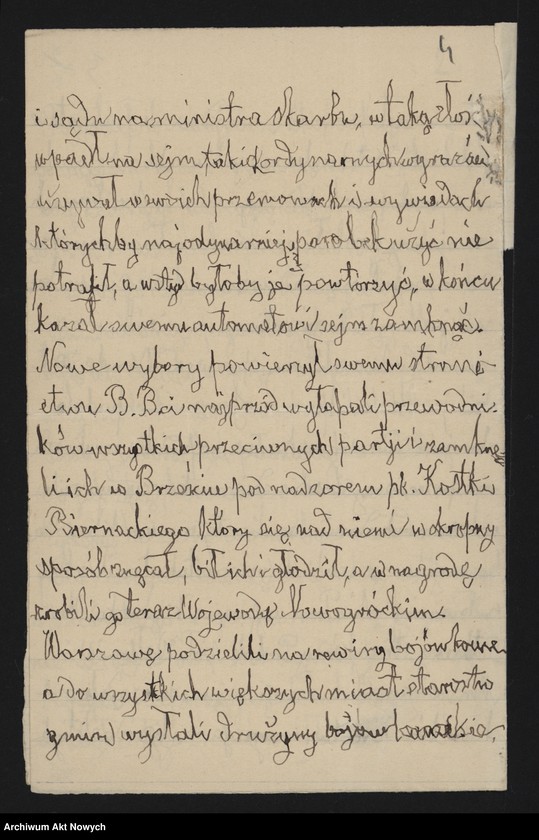 4
i sądu na ministra skarbu, w taką złość
wpadł na sejm takich ordynarnych wyrazów
używał w swoich przemowach i wywiadach
których by najodynarniejszy parobek użyć nie
potrafił, a wstyd byłoby je powtórzyć, w końcu
kazał swemu automatowi sejm zamknąć.
Nowe wybory powierzył swemu stronni-
ctwu B.B. ci najprzód wyłapali przewodni-
ków wszystkich przeciwnych partji i zamknę
li ich w Brześciu pod nadzorem pł. Kostki
Biernackiego który się nad niemi w okropny
sposób znęcał, bił ich i głodził, a w nagrodę
zrobili go teraz Wojewodą Nowogróckim.
Warszawę podzielili na rewiry bojówkowe
a do wszystkich większych miast starostw
gmin wysłali drużyny
Archiwum Akt Nowych